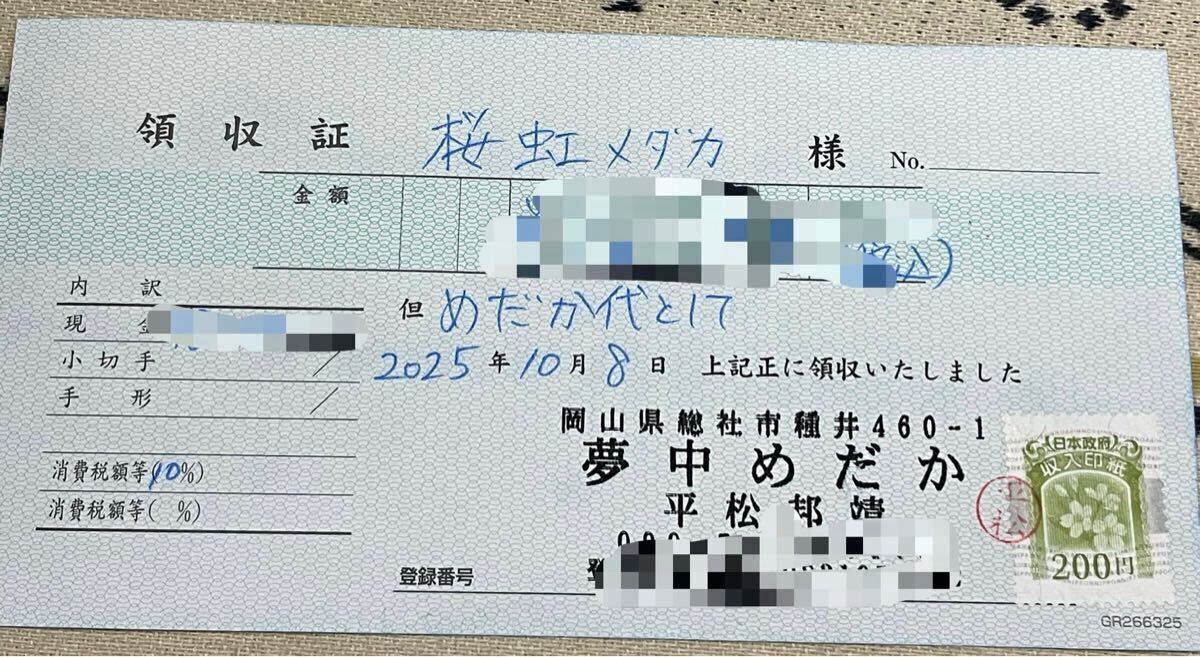 領収証 桜虹メダカ 様 No.
金額
税込)
内訳
現金
小切手
手形
消費税額等(10%)
消費税額等( %)
但 めだか代として
2025年10月8日 上記正に領収いたしました
岡山県総社市種井460-1
夢中めだか
平松邦靖
登録番号
平松
日本政府
収入印紙
200円
GR266325